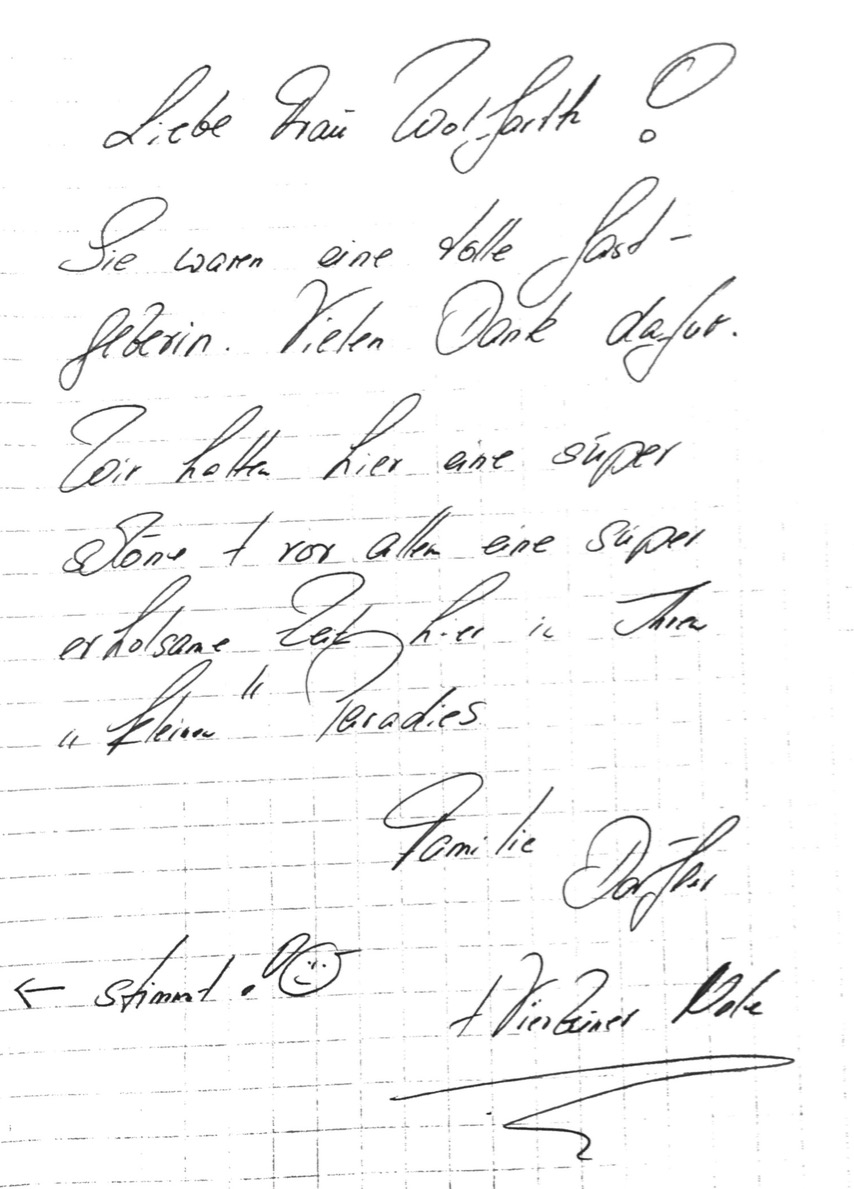 Liebe Frau Wolfarth !
Sie waren eine tolle Gast-
geberin. Vielen Dank dafür.
Wir hatten hier eine super
schöne + vor allem eine super
erholsame Zeit hier in Ihrem
"kleinen" Paradies
Familie
+ Vierbeiner
← stimmt !